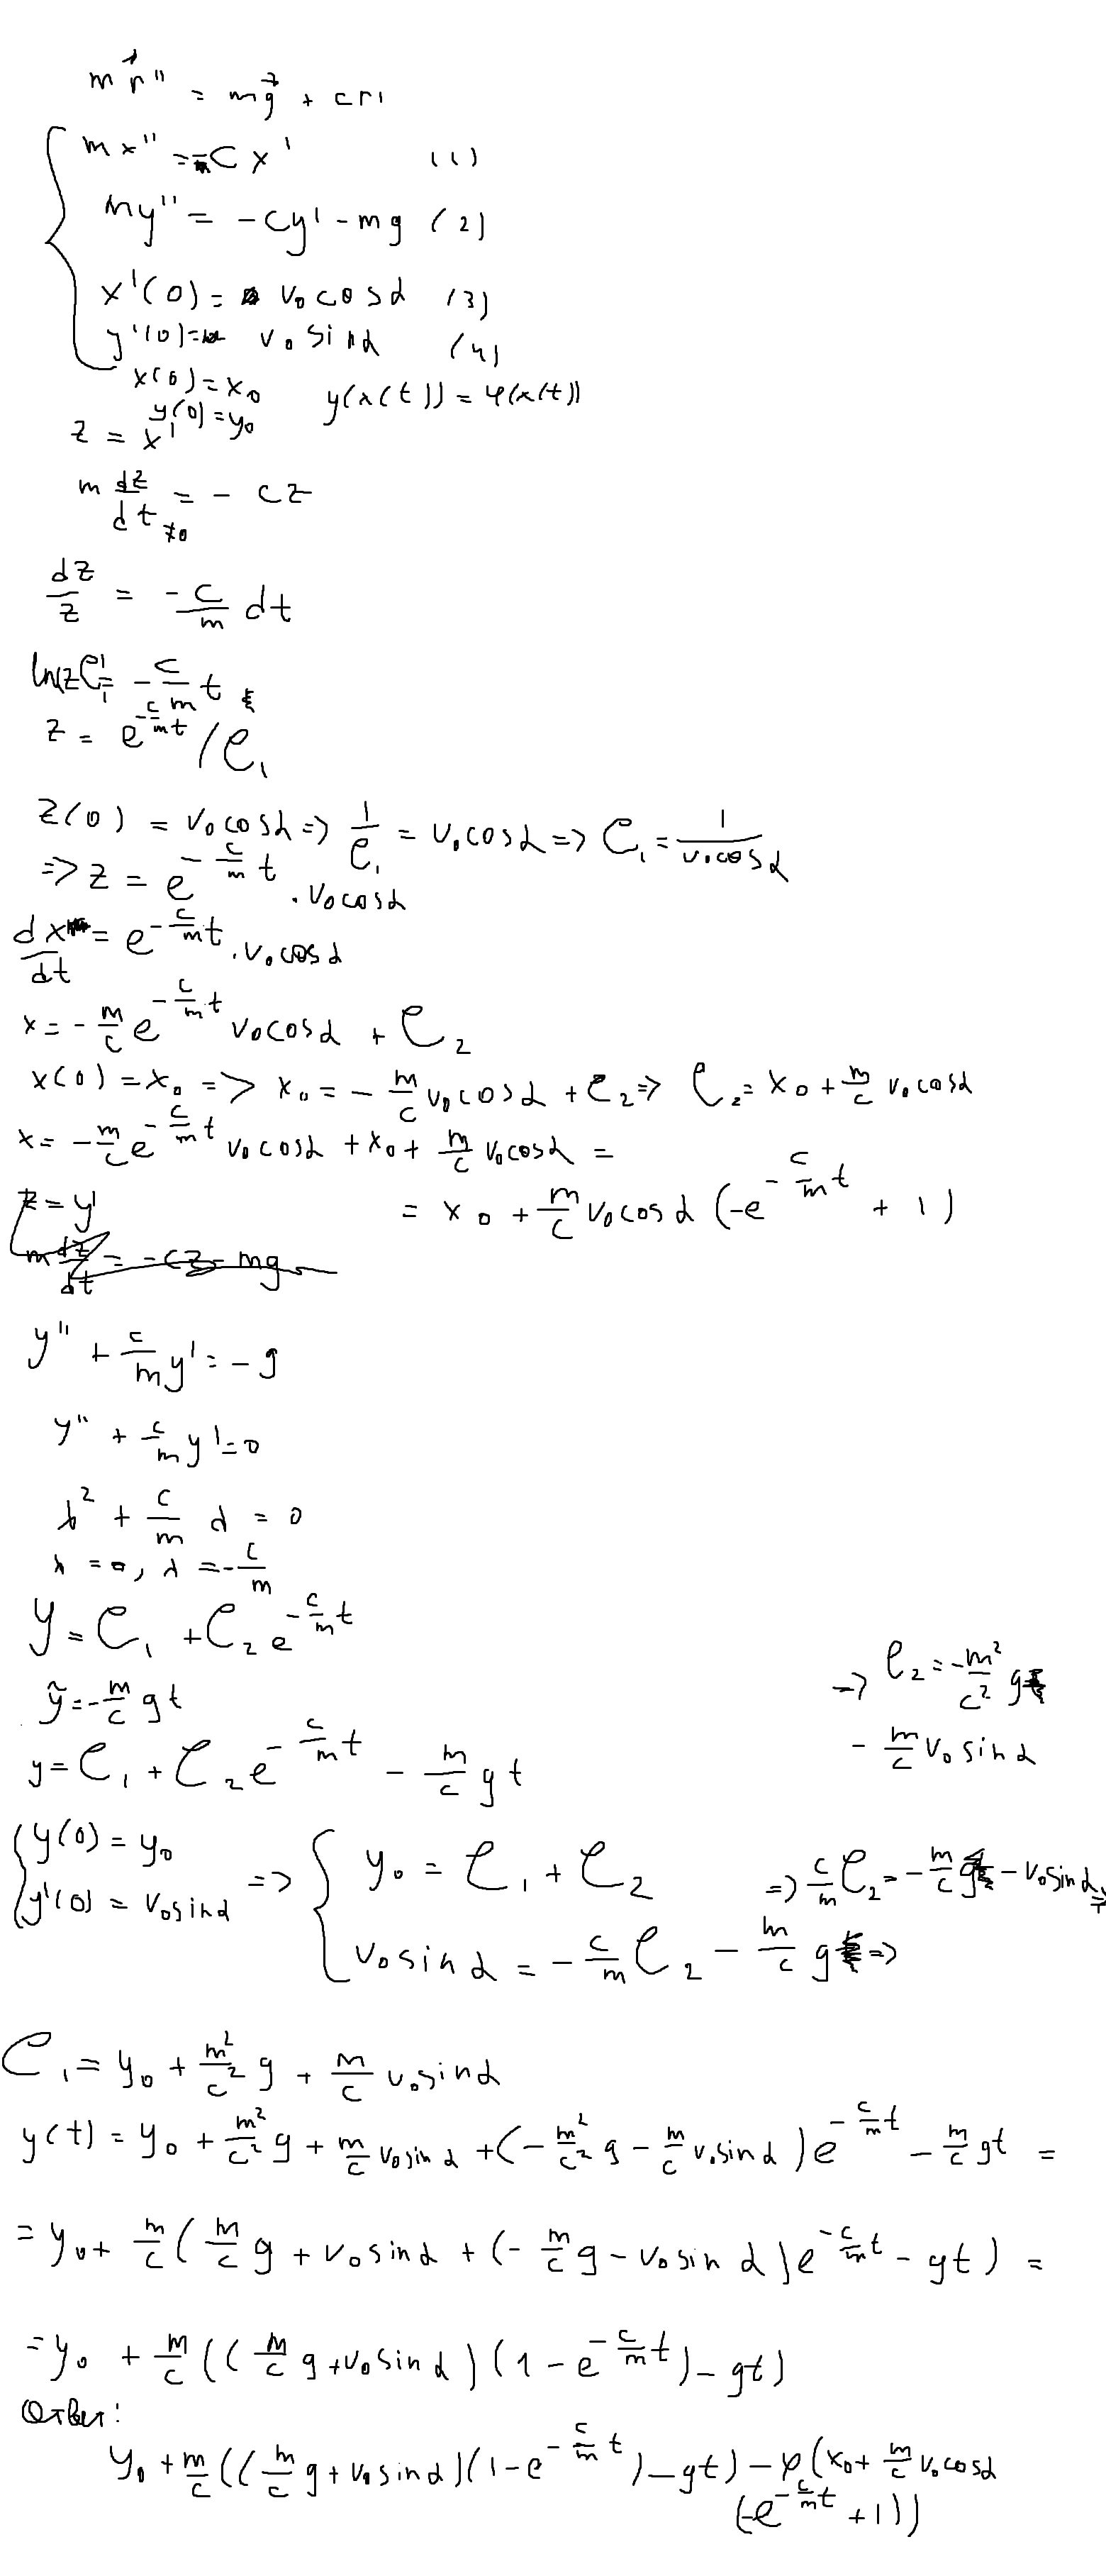 m r⃗'' = m g⃗ + cr'
{ m x'' = -C x' (1)
my'' = -cy' - mg (2)
x'(0) = v₀ cos α (3)
y'(0) = v₀ sin α (4)
x(0) = x₀ y(x(t)) = φ(x(t))
y(0) = y₀
z = x'
m dz/dt = - cz
≠0
dz/z = - c/m dt
ln|z C₁| = - c/m t
z = e^(-c/m t) / C₁
z(0) = v₀ cos α => 1/C₁ = v₀ cos α => C₁ = 1/(v₀ cos α)
=> z = e^(-c/m t) · v₀ cos α
dx/dt = e^(-c/m t) · v₀ cos α
x = - m/c e^(-c/m t) v₀ cos α + C₂
x(0) = x₀ => x₀ = - m/c v₀ cos α + C₂ => C₂ = x₀ + m/c v₀ cos α
x = - m/c e^(-c/m t) v₀ cos α + x₀ + m/c v₀ cos α =
= x₀ + m/c v₀ cos α (-e^(-c/m t) + 1)
z = y'
m dz/dt = -cz - mg
y'' + c/m y' = -g
y'' + c/m y' = 0
λ² + c/m λ = 0
λ = 0, λ = - c/m
y = C₁ + C₂ e^(-c/m t)
ỹ = - m/c g t
y = C₁ + C₂ e^(-c/m t) - m/c g t
{ y(0) = y₀
y'(0) = v₀ sin α => { y₀ = C₁ + C₂
v₀ sin α = - c/m C₂ - m/c g =>
=> c/m C₂ = - m/c g - v₀ sin α =>
=> C₂ = - m²/c² g
- m/c v₀ sin α
C₁ = y₀ + m²/c² g + m/c v₀ sin α
y(t) = y₀ + m²/c² g + m/c v₀ sin α + (- m²/c² g - m/c v₀ sin α) e^(-c/m t) - m/c gt =
= y₀ + m/c ( m/c g + v₀ sin α + (- m/c g - v₀ sin α) e^(-c/m t) - gt ) =
= y₀ + m/c (( m/c g + v₀ sin α)(1 - e^(-c/m t)) - gt)
Ответ:
y₀ + m/c (( m/c g + v₀ sin α)(1 - e^(-c/m t)) - gt) - φ(x₀ + m/c v₀ cos α
(-e^(-c/m t) + 1))